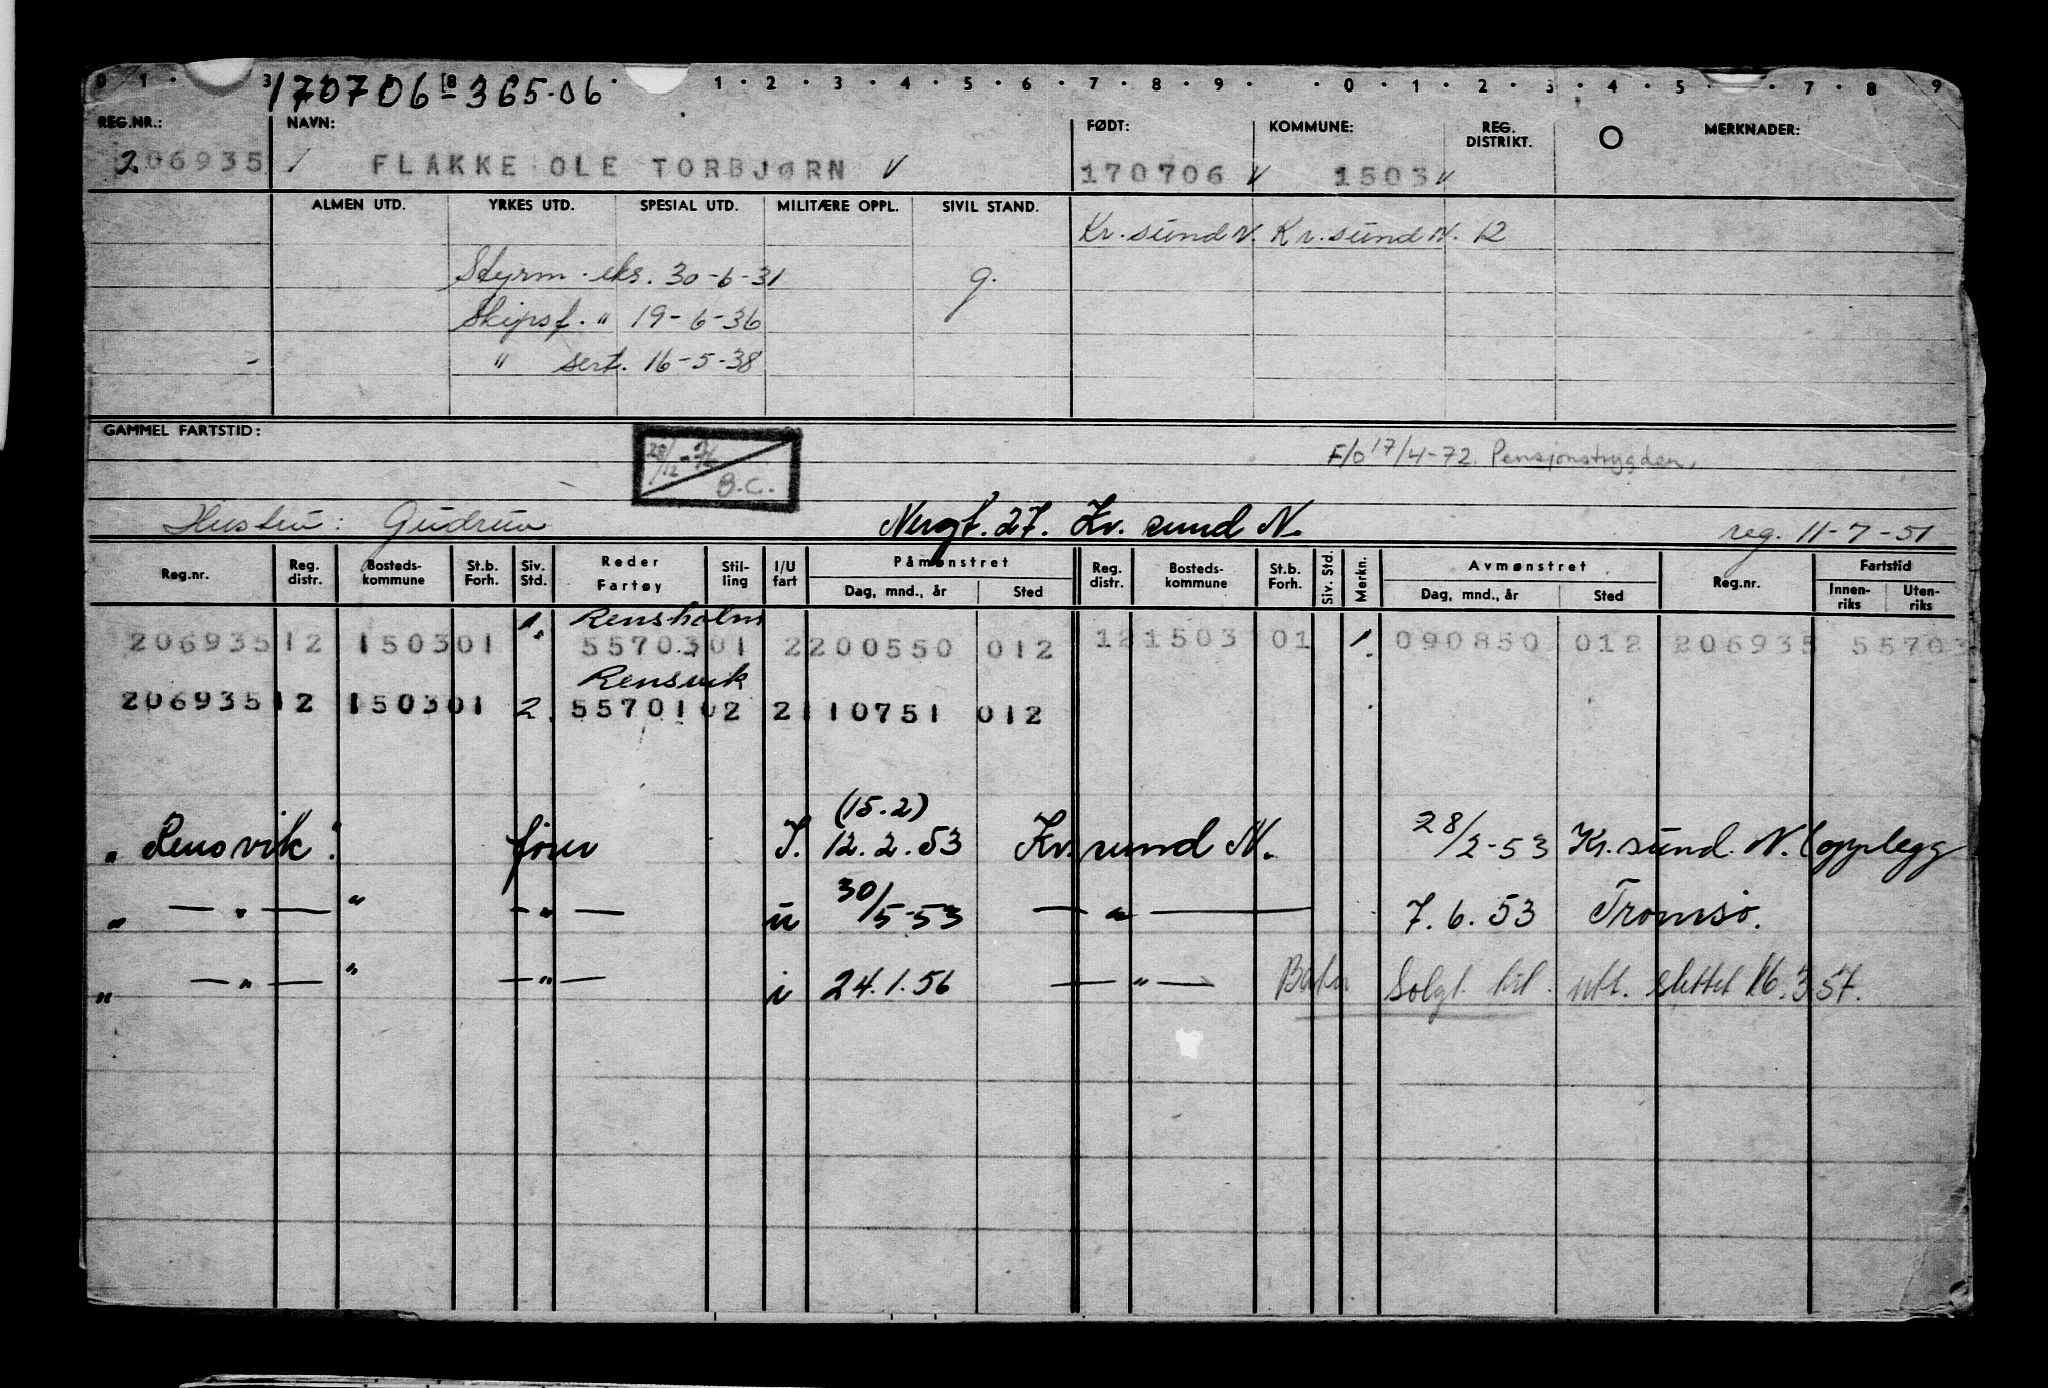 0 1 . 3 170706 - 365-06 1 . 2 . 3 . 4 . 5 . 6 . 7 . 8 . 9 . . 0 . 1 . 2 . 3 . 4 . 5 . . 7 . 8 . 9
REG.NR.: NAVN: FØDT: KOMMUNE: REG. DISTRIKT. O MERKNADER:
206935 / FLAKKE OLE TORBJØRN v 170706 v 1503 v
ALMEN UTD. YRKES UTD. SPESIAL UTD. MILITÆRE OPPL. SIVIL STAND.
Kr.sund N. Kr.sund N. 12
Styrm. eks. 30-6-31 g.
Skipsf. " 19-6-36
" sert. 16-5-38
GAMMEL FARTSTID:
28/12 B.C.
F/O 17/4-72. Pensjonstrygden.
Hustru: Gudrun Nergt. 27. Kr. sund N. reg. 11-7-51
Reg.nr. Reg. distr. Bosteds-kommune St.b. Forh. Siv. Std. Reder Fartøy Stil-ling I/U fart Påmønstret Dag, mnd., år Sted Reg. distr. Bosteds-kommune St.b. Forh. Siv. Std. Merkn. Avmønstret Dag, mnd., år Sted Reg.nr. Fartstid Innen-riks Uten-riks
1. Rensholm
206935 12 1503 01 55703 01 2 200550 012 12 1503 01 1. 090850 012 206935 55703
Rensvik
206935 12 1503 01 2. 55701 02 2 110751 012
(15.2)
"Rensvik" fører I. 12.2.53 Kr. sund N. 28/2-53 Kr.sund. N. (opplegg
" — " — " — " — u 30/5-53 — " — 7.6.53 Tromsø.
" — " — " — " — i 24.1.56 — " — Solgt til utl. slettet 16.3.57.